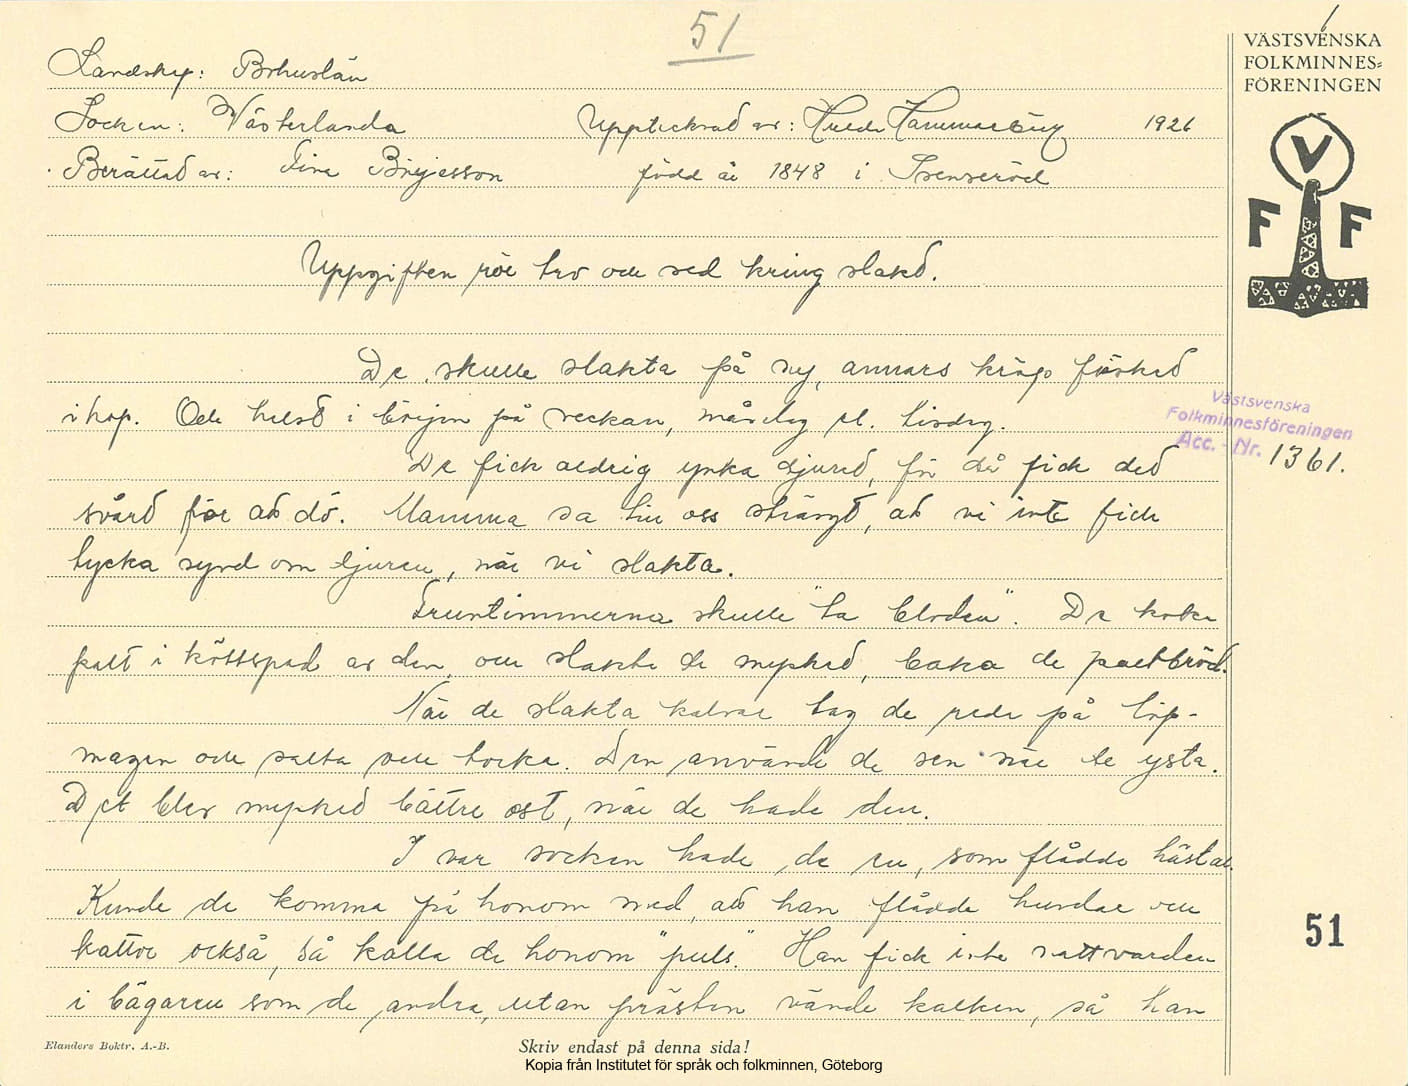 51
VÄSTSVENSKA
FOLKMINNES=
FÖRENINGEN
V
F F
Landskap: Bohuslän
Socken: Västerlanda Upptecknad av: Hulda Hammarberg 1926
Berättad av: Tina Börjesson född år 1848 i Svenseröd
Uppgiften rör tro och sed kring slakt.
De skulle slakta på ny, annars kröp förhed
ihop. Och helst i början på veckan, måndag el. tisdag.
De fick aldrig ynka djured, för då fick ded
svård för att dö. Mamma sa till oss strängt, att vi inte fick
tycka synd om djuren, när vi slakta.
Fruntimmerna skulle "ta bloden". De koka
palt i köttspad av den, och slakta de mycked, baka de paltbröd.
När de slakta kalvar tog de reda på löp-
magen och salta och torka. Den använde de sen när de ysta.
Det blev mycked bättre ost, när de hade den.
I var socken hade de en, som flådde hästar.
Kunde de komma på honom med, att han flådde hundar och
kattor också, så kalla de honom "puls". Han fick inte nattvarden
i bägaren som de andra, utan prästen vände kalken, så han
Västsvenska
Folkminnesföreningen
Acc. - Nr. 1361.
51
Elanders Boktr. A.-B.
Skriv endast på denna sida!
Kopia från Institutet för språk och folkminnen, Göteborg